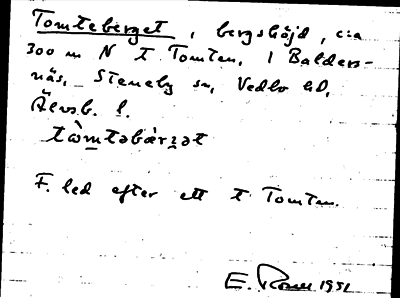 Tomteberget, bergshöjd, c:a
300 m N t Tomten, i Balders-
näs, Steneby sn, Vedbo hd,
Älvsb. l.
tòm̲təbær̀ʒ̲ət
F. led efter ett t Tomten.
E. Rosell 1951